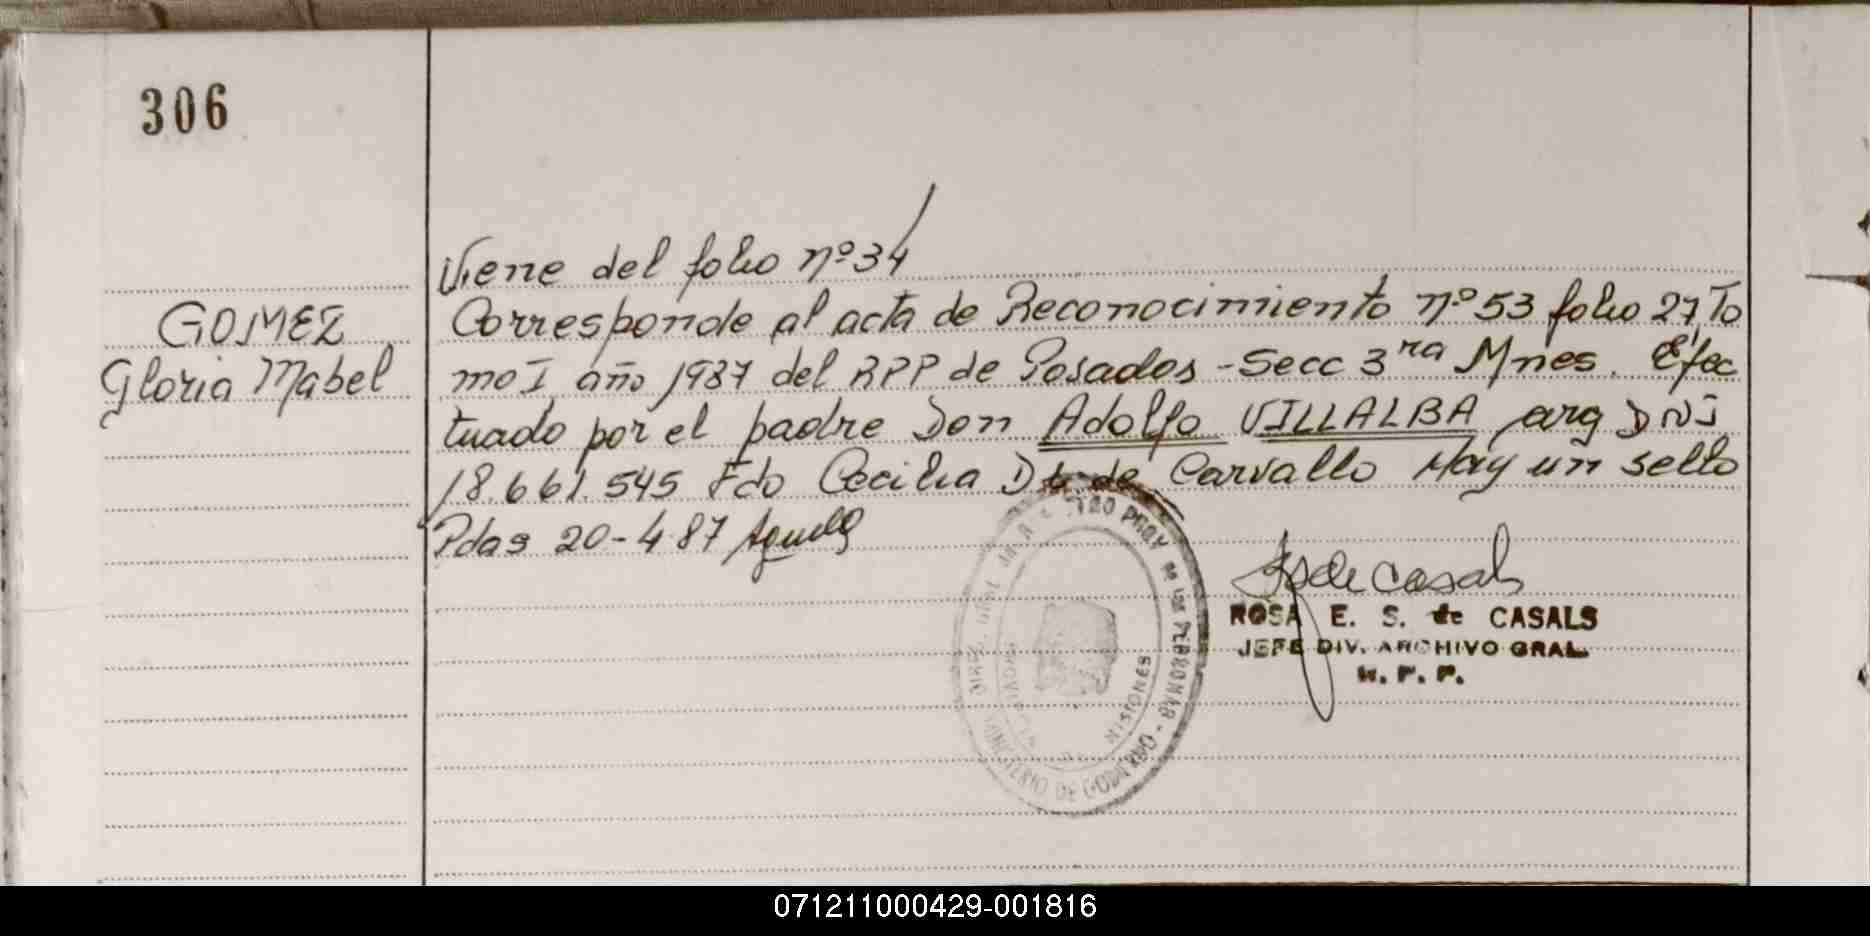 306
Viene del folio nº 34
GOMEZ
Gloria Mabel
Corresponde al acta de Reconocimiento nº 53 folio 27 To
mo I, año 1987 del RPP de Posadas - Secc 3ra Mnes. Efec
tuado por el padre Don Adolfo VILLALBA arg DNI
18.661.545 Fdo Cecilia D de Carvallo Hay un sello
Pdas 20-4-87
de Casals
ROSA E. S. de CASALS
JEFE DIV. ARCHIVO GRAL.
R. P. P.
PROV. DE LAS PERSONAS - MINISTERIO DE GOBIERNO
MISIONES
071211000429-001816